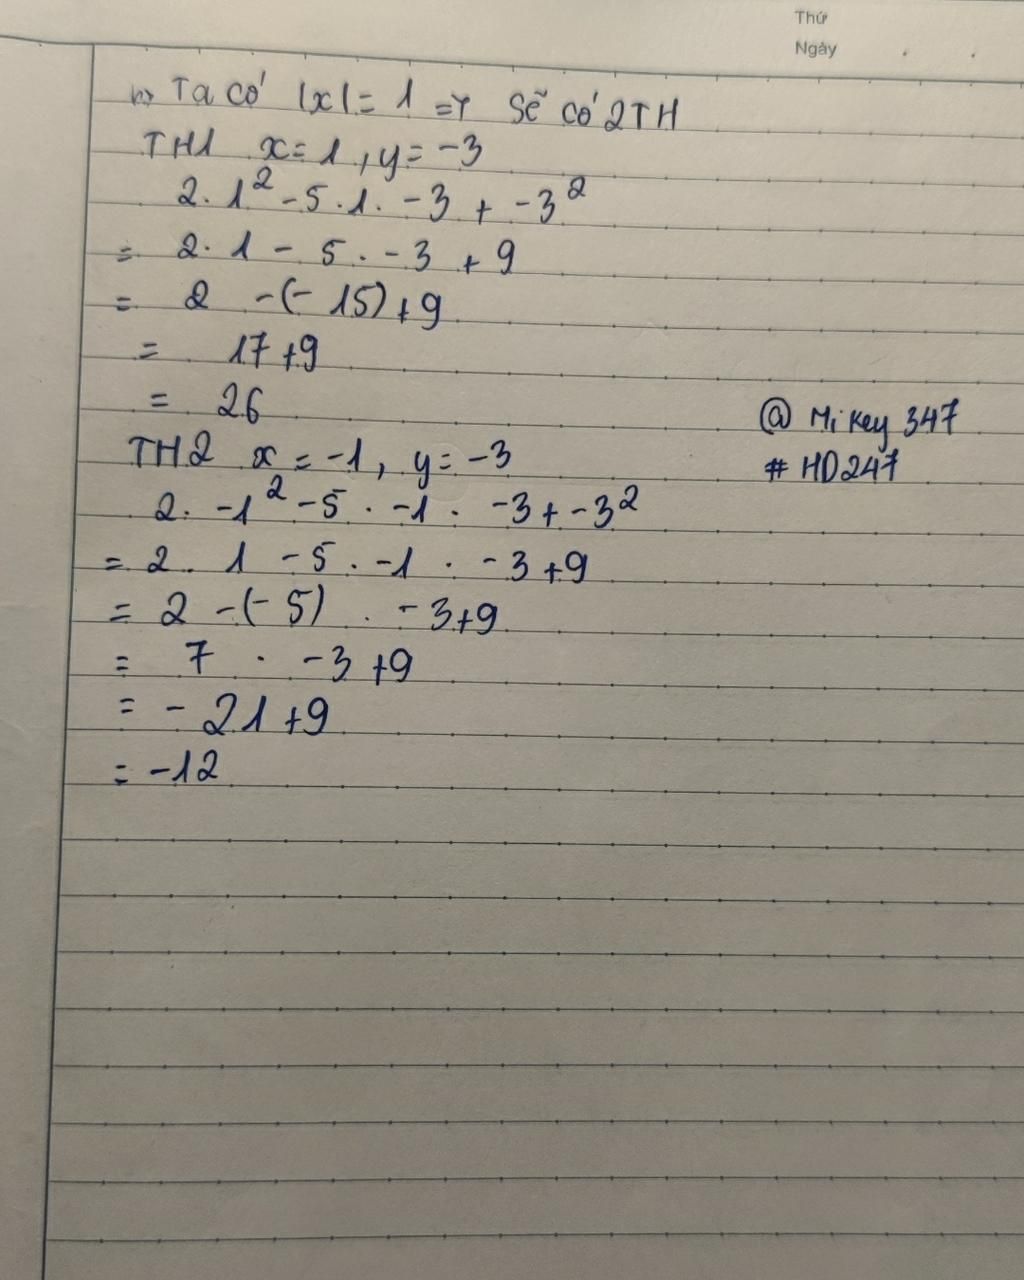 Thứ
Ngày
b> Ta có |x| = 1 => Sẽ có 2TH
TH1 x = 1, y = -3
2. 1² - 5 . 1. -3 + -3²
= 2. 1 - 5 . -3 + 9
= 2 -(-15)+9
= 17+9
= 26
@ Mikey 347
# HD247
TH2 x = -1, y = -3
2. -1² - 5 . -1 . -3 + -3²
= 2. 1 - 5 . -1 . -3 +9
= 2 -(-5) . -3+9
= 7 . -3 +9
= - 21 +9
= -12